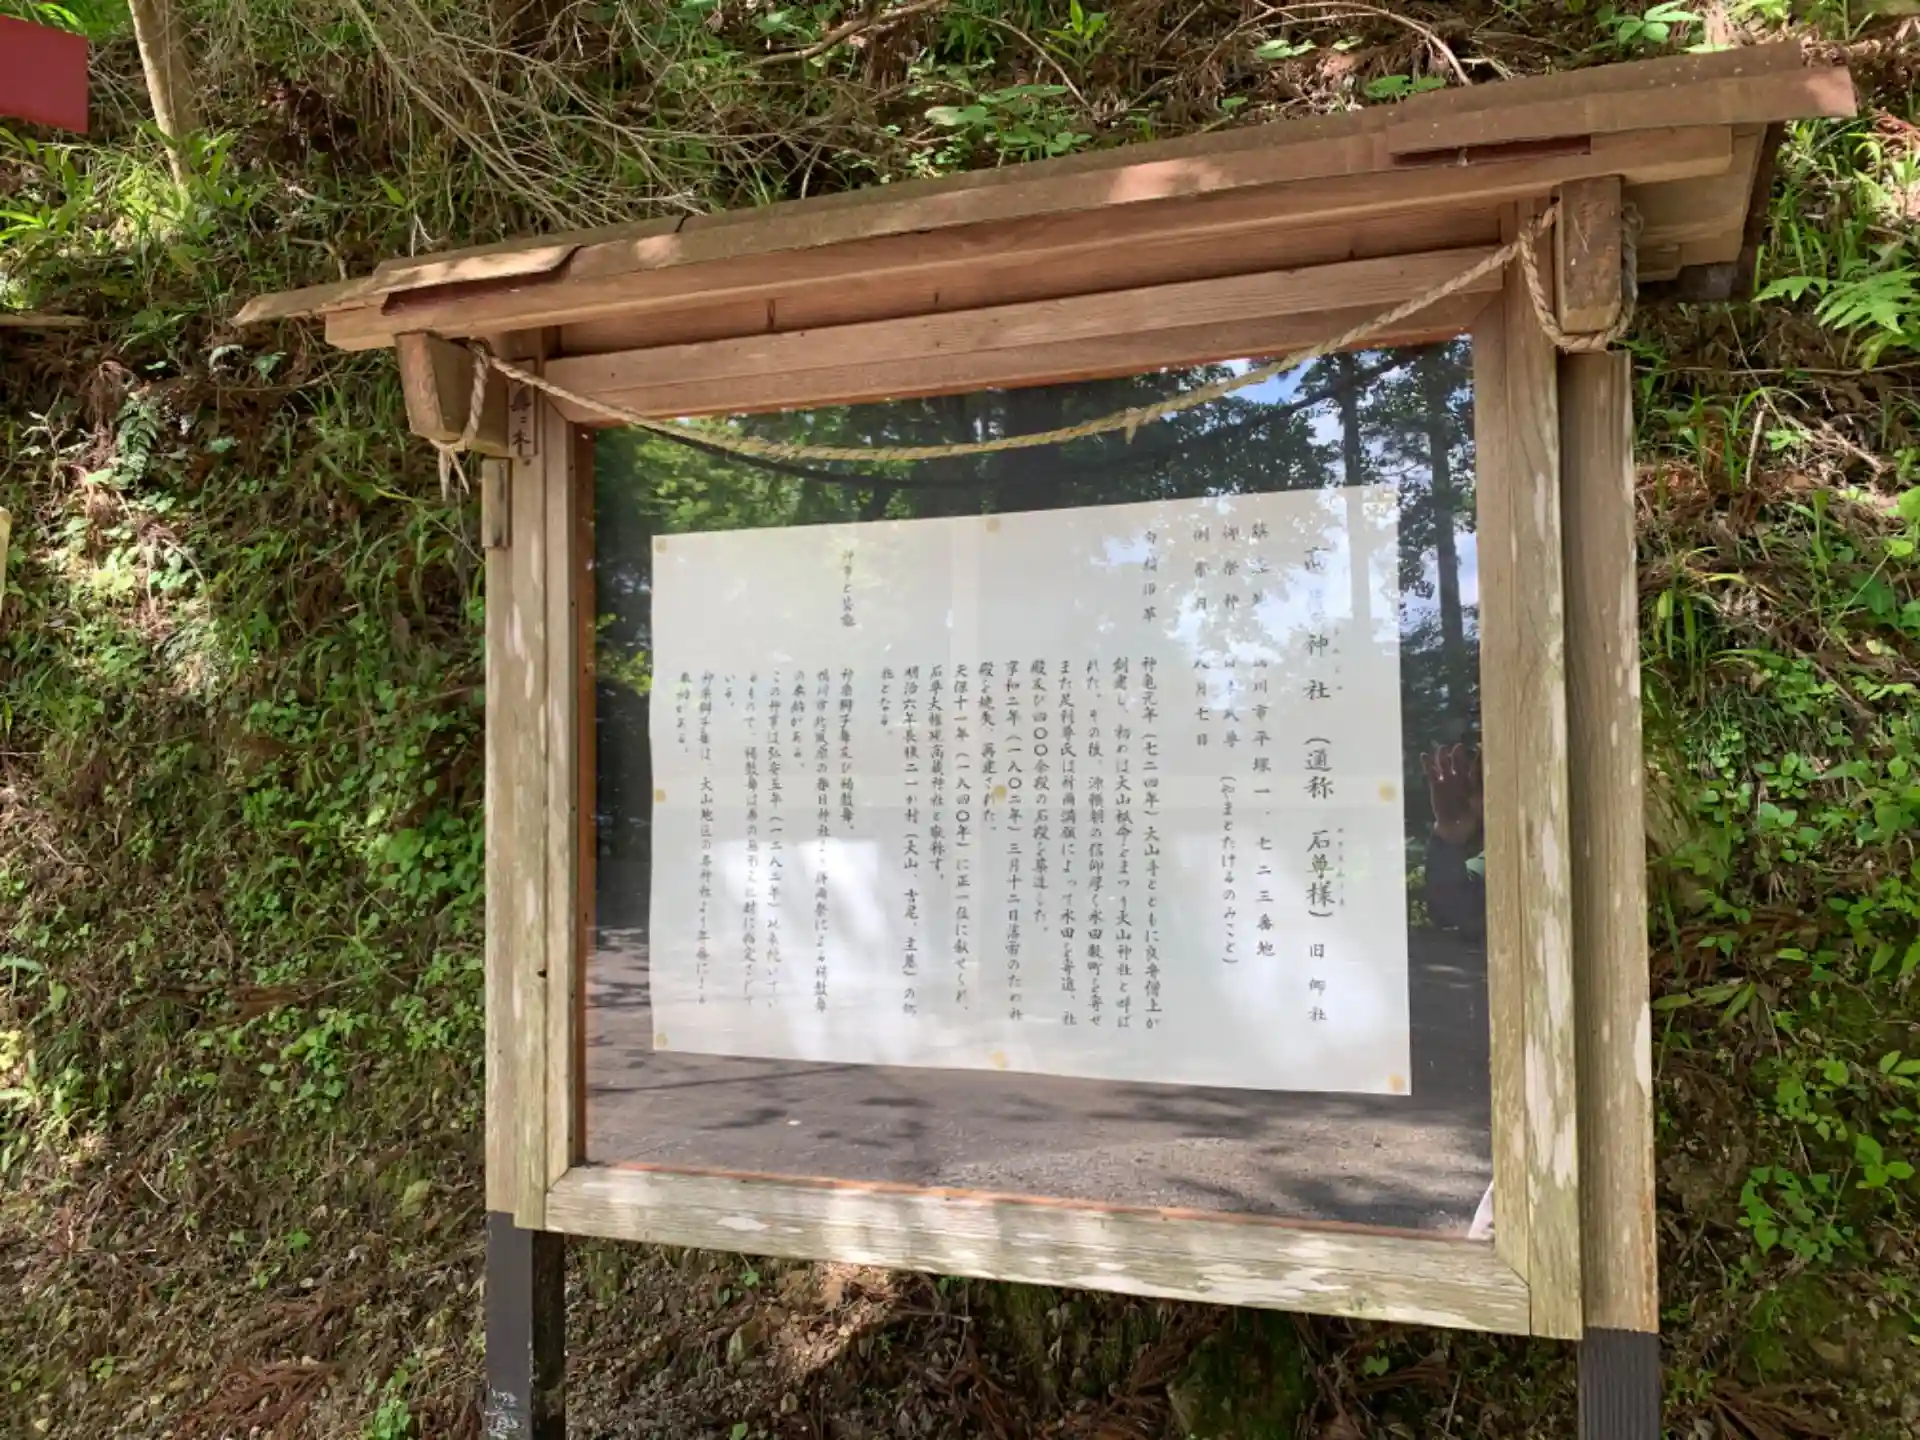 高 神社 (通称 石尊様) 旧郷社
鎮座地 鴨川市平塚一、七二三番地
御祭神 日本武尊 (やまとたけるのみこと)
例祭月 九月七日
神亀元年(七二四年)大山寺とともに良弁僧上が
創建し、初めは大山祇命をまつり大山神社と呼ば
れた。その後、源頼朝の信仰厚く水田数町を寄せ
また足利尊氏は祈雨満願によって水田を寄進、社
殿及び四〇〇余段の石段を築造した。
享和二年(一八〇二年)三月十二日落雷のため社
殿を焼失、再建された。
天保十一年(一八四〇年)に正一位に叙せられ、
石尊大権現高蔵神社と敬称す。
明治六年長狭二一か村(大山、吉尾、主基)の郷
社となる。
神事と芸能
神楽獅子舞及び羯鼓舞。
鴨川市北風原の春日神社より祥雨祭による羯鼓舞
の奉納がある。
この神事は弘安五年(一二八二年)以来続いてい
るもので、羯鼓舞は県の無形文化財に指定されて
いる。
神楽獅子舞は、大山地区の各神社より年番による
奉納がある。